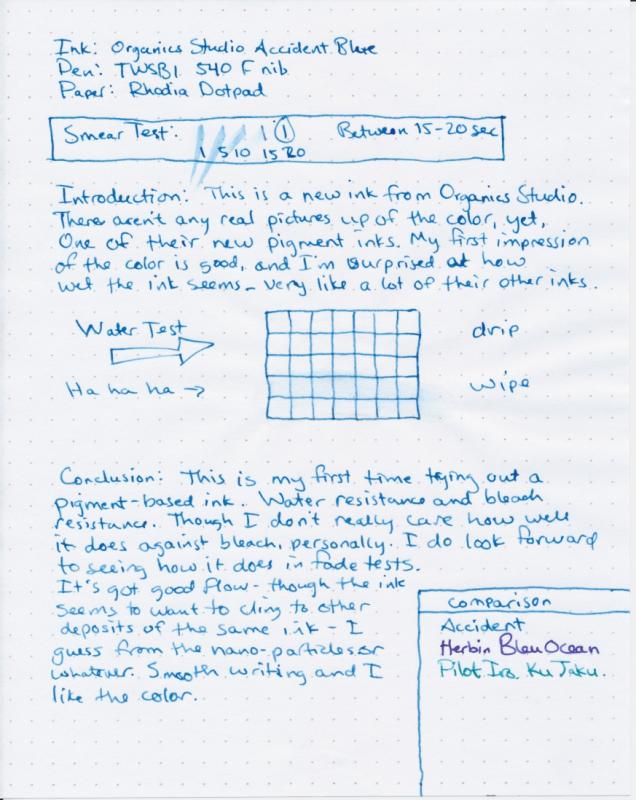 Ink: Organics Studio Accident Blue
Pen: TWSBI 540 F nib
Paper: Rhodia Dotpad
Smear Test: 1 1 Between 15-20 sec
1 5 10 15 20
Introduction: This is a new ink from Organics Studio.
There aren't any real pictures up of the color, yet,
One of their new pigment inks. My first impression
of the color is good, and I'm surprised at how
wet the ink seems - very like a lot of their other inks.
Water Test
drip
Ha ha ha →
wipe
Conclusion: This is my first time trying out a
pigment-based ink. Water resistance and bleach
resistance. Though I don't really care how well
it does against bleach, personally. I do look forward
to seeing how it does in fade tests.
It's got good flow - though the ink
seems to want to cling to other
deposits of the same ink - I
guess from the nano-particles or
whatever. Smooth writing and I
like the color.
Comparison
Accident
Herbin Bleu Ocean
Pilot Iro. Ku Jaku.